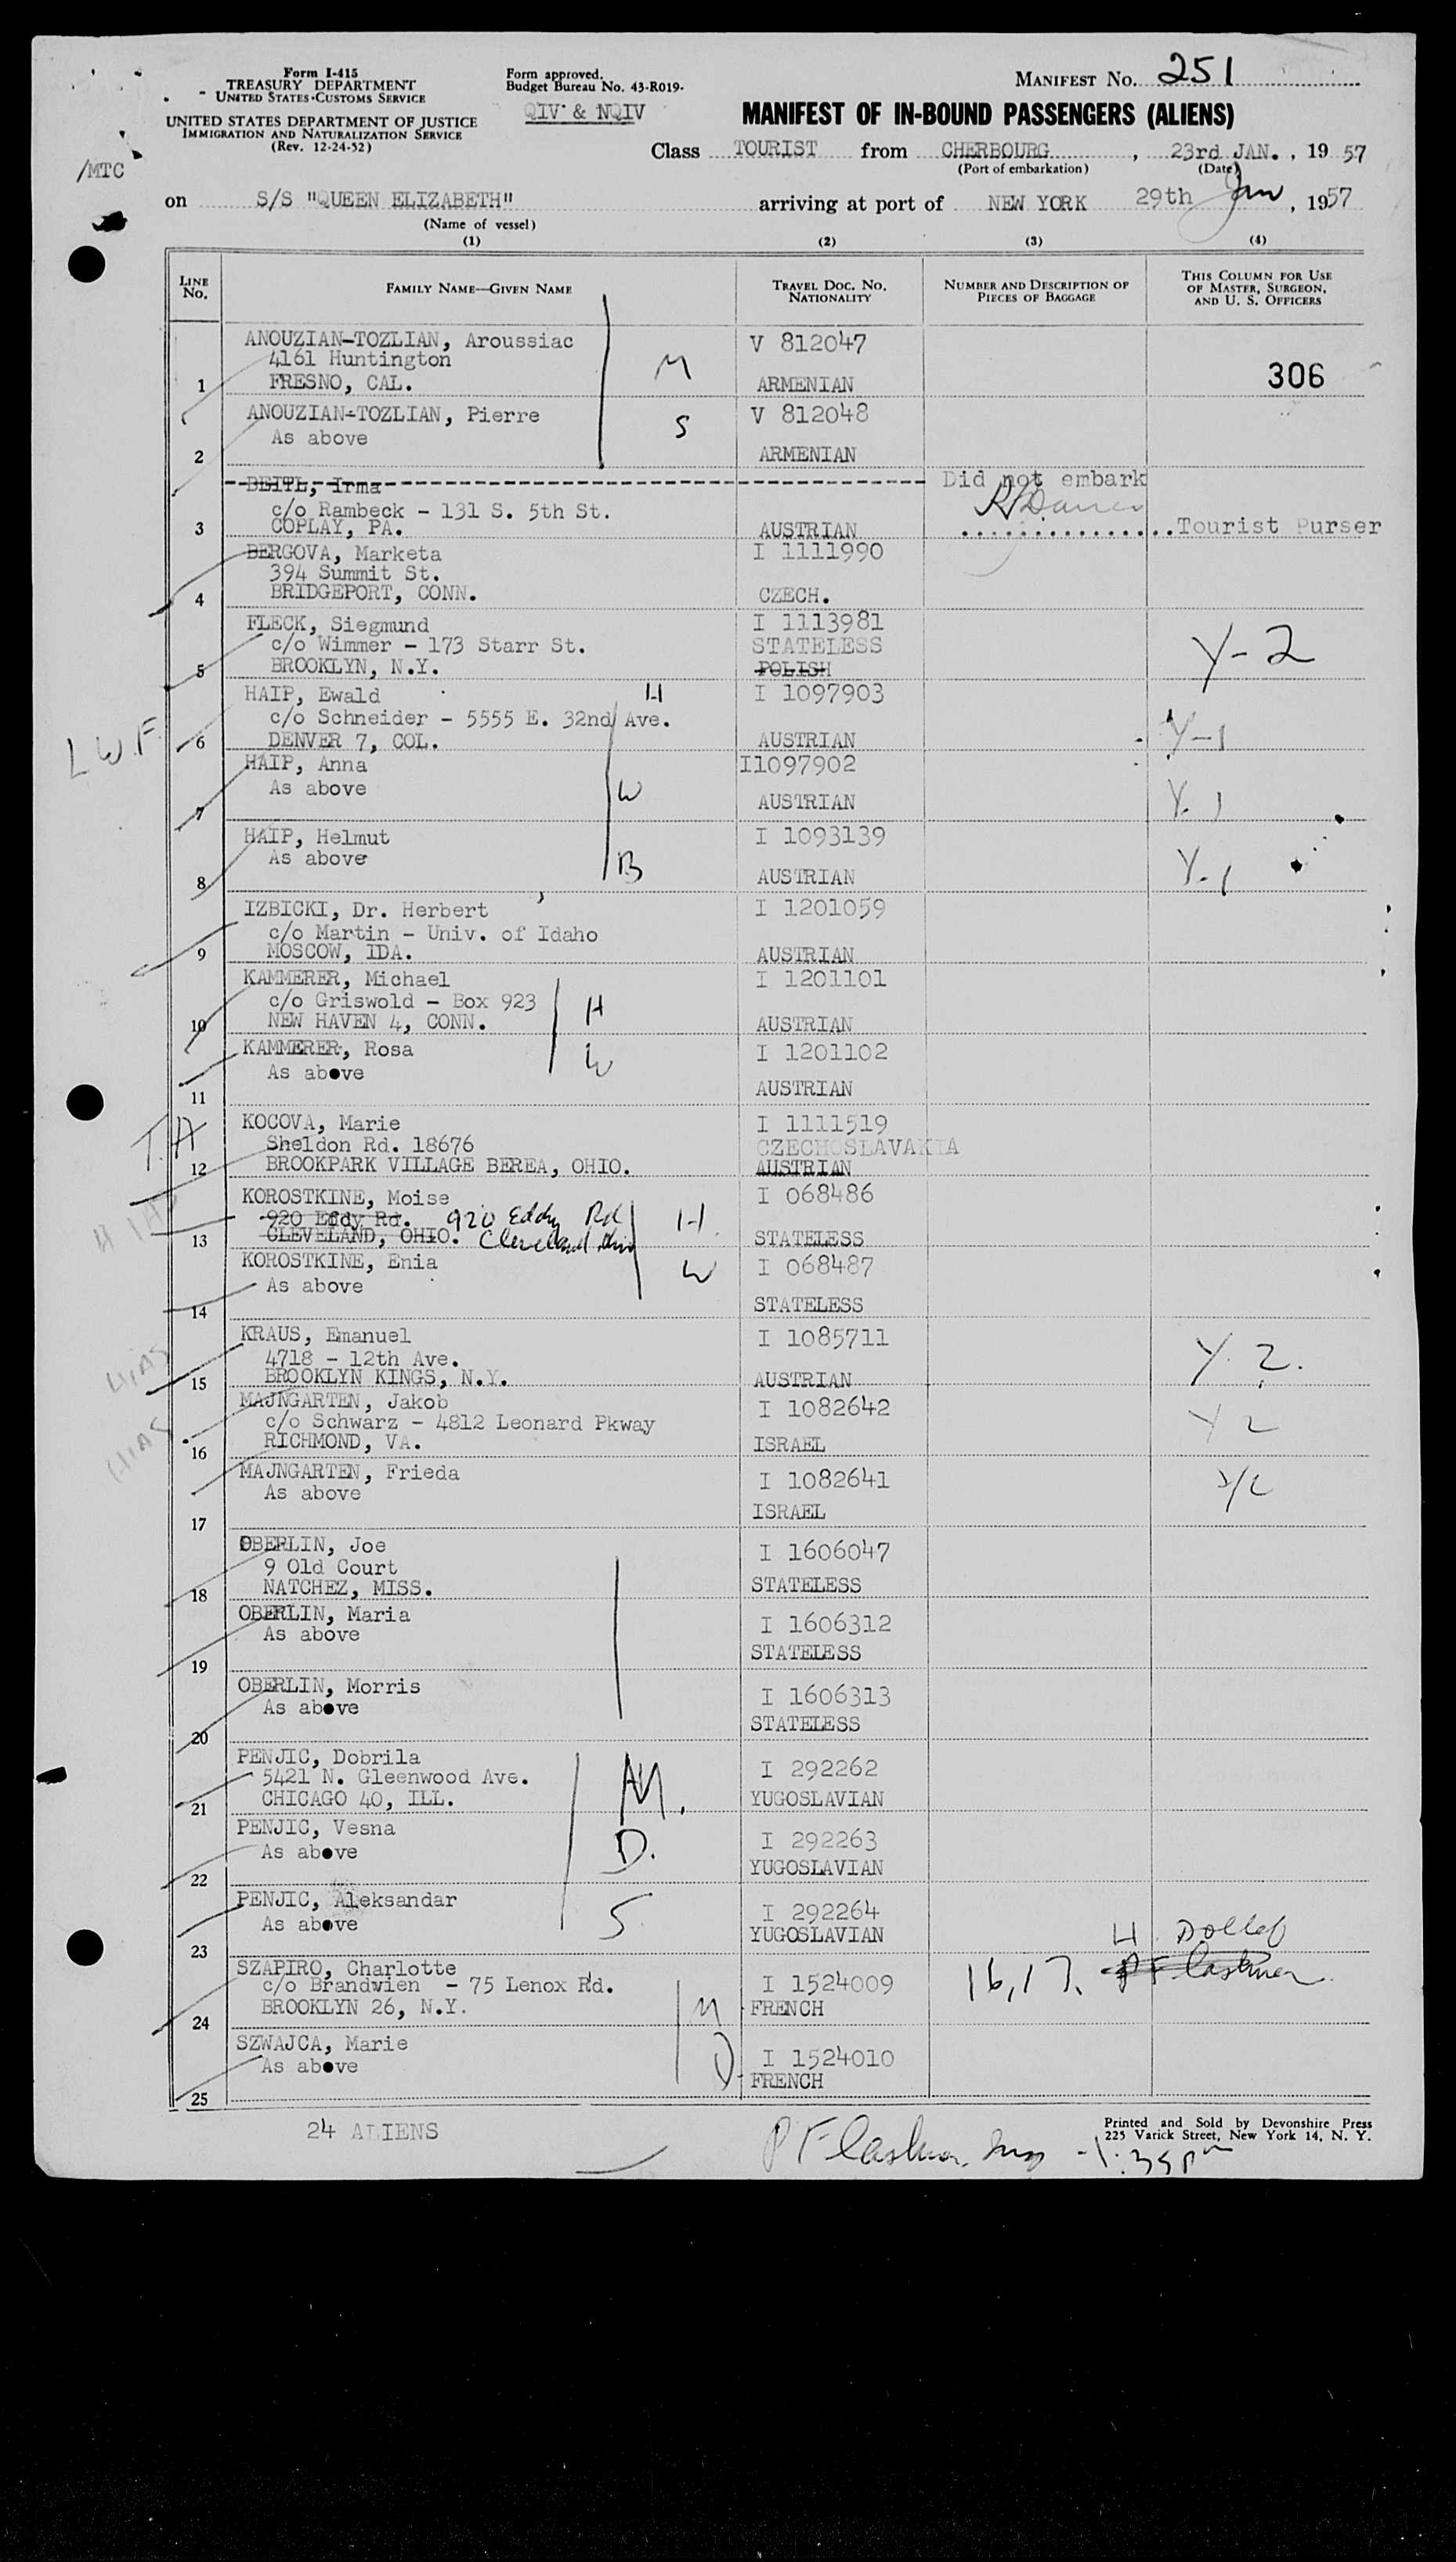 Form I-415
TREASURY DEPARTMENT
UNITED STATES CUSTOMS SERVICE
UNITED STATES DEPARTMENT OF JUSTICE
IMMIGRATION AND NATURALIZATION SERVICE
(Rev. 12-24-52)
Form approved.
Budget Bureau No. 43-R019-
QIV & NQIV
MANIFEST NO. 251
MANIFEST OF IN-BOUND PASSENGERS (ALIENS)
/MTC
Class TOURIST from CHERBOURG, 23rd JAN., 1957
(Port of embarkation) (Date)
on S/S "QUEEN ELIZABETH" arriving at port of NEW YORK 29th Jan, 1957
(Name of vessel)
(1) (2) (3) (4)
LINE No. FAMILY NAME—GIVEN NAME TRAVEL DOC. NO. NATIONALITY NUMBER AND DESCRIPTION OF PIECES OF BAGGAGE THIS COLUMN FOR USE OF MASTER, SURGEON, AND U. S. OFFICERS
ANOUZIAN-TOZLIAN, Aroussiac V 812047
4161 Huntington M
1 FRESNO, CAL. ARMENIAN 306
ANOUZIAN-TOZLIAN, Pierre V 812048
As above S
2 ARMENIAN
DEITL, Irma Did not embark
c/o Rambeck - 131 S. 5th St.
3 COPLAY, PA. AUSTRIAN Tourist Purser
BERGOVA, Marketa I 1111990
394 Summit St.
4 BRIDGEPORT, CONN. CZECH.
FLECK, Siegmund I 1113981
c/o Wimmer - 173 Starr St. STATELESS Y-2
5 BROOKLYN, N.Y. POLISH
HAIP, Ewald H I 1097903
c/o Schneider - 5555 E. 32nd Ave.
L.W.F. 6 DENVER 7, COL. AUSTRIAN Y-1
HAIP, Anna I1097902
As above W
7 AUSTRIAN Y-1
HAIP, Helmut I 1093139
As above B
8 AUSTRIAN Y-1
IZBICKI, Dr. Herbert I 1201059
c/o Martin - Univ. of Idaho
9 MOSCOW, IDA. AUSTRIAN
KAMMERER, Michael I 1201101
c/o Griswold - Box 923 H
10 NEW HAVEN 4, CONN. AUSTRIAN
KAMMERER, Rosa W I 1201102
As above
11 AUSTRIAN
KOCOVA, Marie I 1111519
Sheldon Rd. 18676 CZECHOSLAVAKIA
12 BROOKPARK VILLAGE BEREA, OHIO. AUSTRIAN
KOROSTKINE, Moise I 068486
920 Eddy Rd. 920 Eddy Rd H
13 CLEVELAND, OHIO. Cleveland Ohio STATELESS
KOROSTKINE, Enia W I 068487
As above
14 STATELESS
KRAUS, Emanuel I 1085711
4718 - 12th Ave. Y. 2.
HIAS 15 BROOKLYN KINGS, N.Y. AUSTRIAN
MAJNGARTEN, Jakob I 1082642
c/o Schwarz - 4812 Leonard Pkway Y 2
HIAS 16 RICHMOND, VA. ISRAEL
MAJNGARTEN, Frieda I 1082641
As above Y2
17 ISRAEL
OBERLIN, Joe I 1606047
9 Old Court
18 NATCHEZ, MISS. STATELESS
OBERLIN, Maria I 1606312
As above
19 STATELESS
OBERLIN, Morris I 1606313
As above
20 STATELESS
PENJIC, Dobrila I 292262
5421 N. Gleenwood Ave. M.
21 CHICAGO 40, ILL. YUGOSLAVIAN
PENJIC, Vesna I 292263
As above D.
22 YUGOSLAVIAN
PENJIC, Aleksandar I 292264
As above S
23 YUGOSLAVIAN
SZAPIRO, Charlotte 16, 17.
c/o Brandwien - 75 Lenox Rd. I 1524009
24 BROOKLYN 26, N.Y. M FRENCH
SZWAJCA, Marie I 1524010
As above D
25 FRENCH
24 ALIENS
Printed and Sold by Devonshire Press
225 Varick Street, New York 14, N. Y.